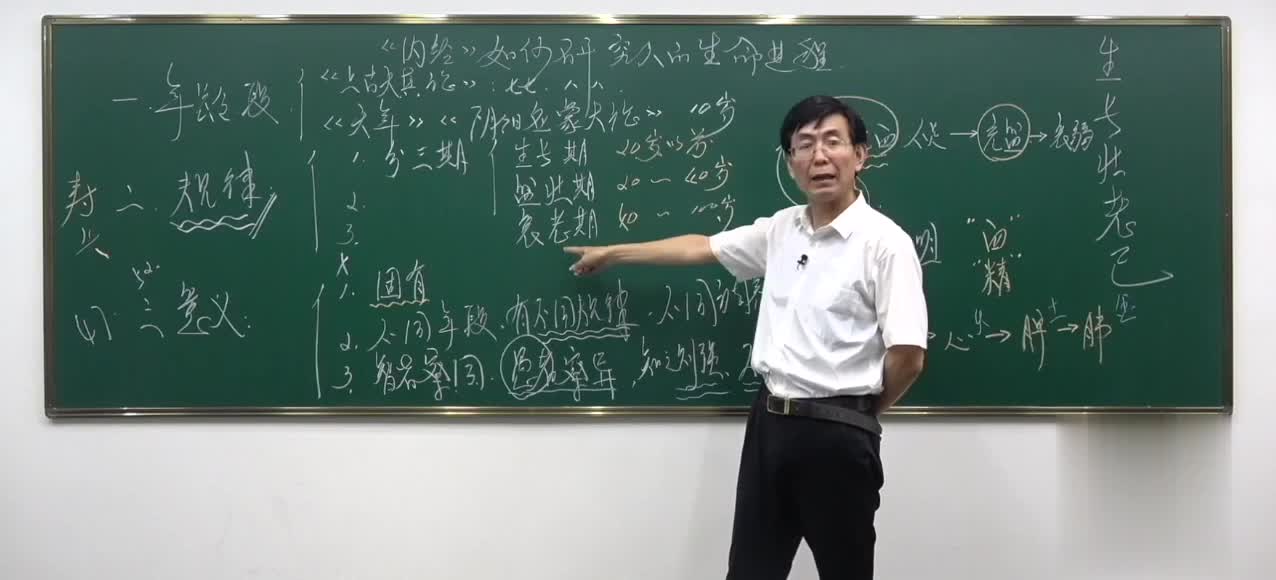 《内经》如何研究人的生命进程
一. 年龄段
《上古天真论》: 七七. 八八.
《天年》《阴阳应象大论》 10岁
二. 规律:
1. 分三期
生长期 20岁以前
盛壮期 20~40岁
衰老期 40~100岁
2.
3.
寿
三 意义:
1. 固有
2. 不同年段, 有不同规律. 不同
3. 智者察同. 愚者察异, 知之则强.
→ 充盛 → 衰弱
明
"血"
"精"
心 → 脾 → 肺
生
长
壮
老
已